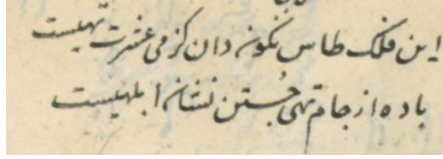 این فلک طاس نگونه دان کز می عشرت تهیست
باده از جام تهی جستن نشان ابلهیست